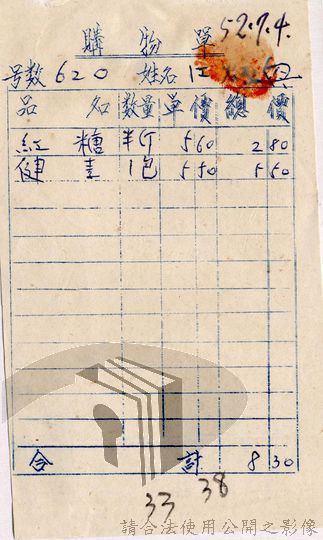 52.9.4.
購物單
号数 620 姓名 江
品名 数量 單價 總價
紅糖 半斤 560 280
健素 1包 550 550
合計 830
33 38
請合法使用公開之影像